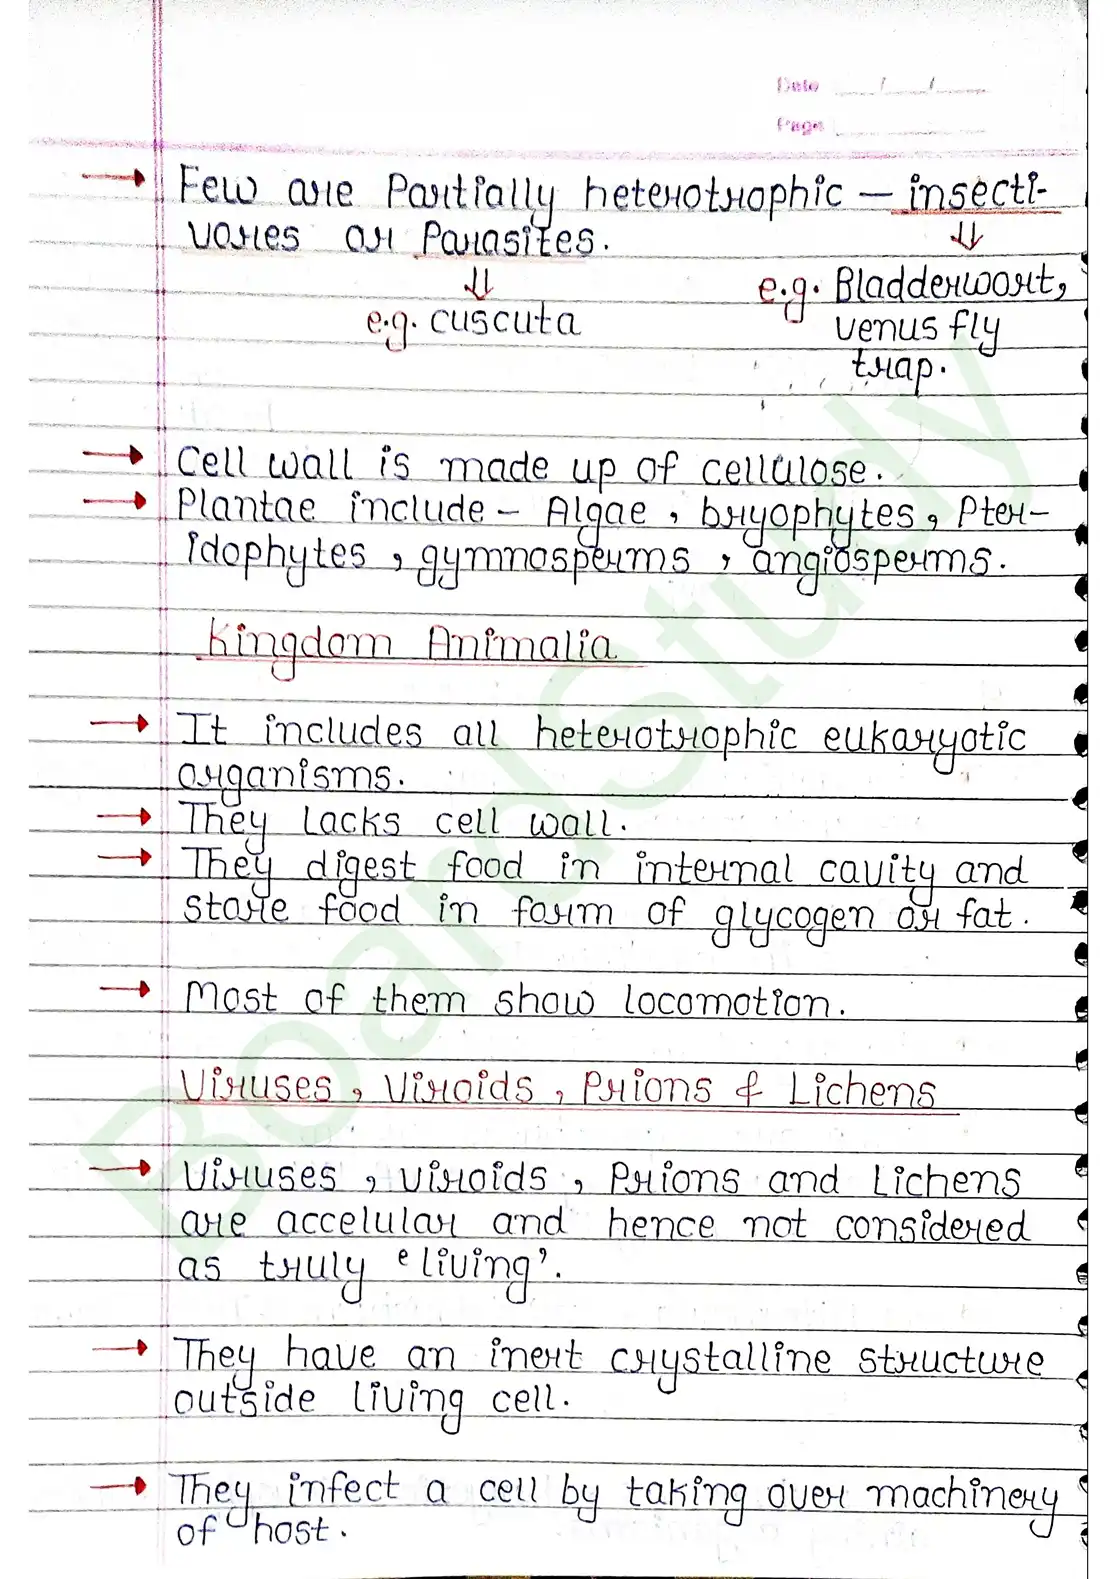 Date
Page
→ Few are Partially heterotrophic — insecti-
vores or Parasites.
⇓ ⇓
e.g. cuscuta e.g. Bladderwort,
venus fly
trap.
→ Cell wall is made up of cellulose.
→ Plantae include - Algae, bryophytes, Pter-
idophytes, gymnosperms, angiosperms.
Kingdom Animalia
→ It includes all heterotrophic eukaryotic
organisms.
→ They Lacks cell wall.
→ They digest food in internal cavity and
store food in form of glycogen or fat.
→ Most of them show locomotion.
Viruses, Viroids, Prions & Lichens
→ Viruses, viroids, Prions and Lichens
are accelular and hence not considered
as truly 'living'.
→ They have an inert crystalline structure
outside living cell.
→ They infect a cell by taking over machinery
of host.
BoardStudy